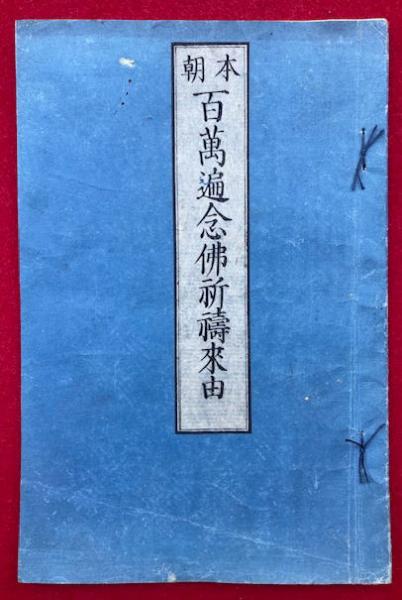 本朝
百萬遍念佛祈禱來由